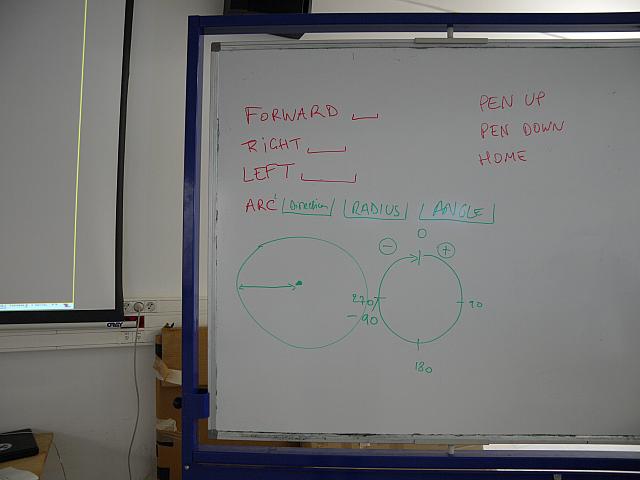 FORWARD
RIGHT
LEFT
ARC Direction RADIUS ANGLE
PEN UP
PEN DOWN
HOME
0
- +
270 / 90
-90
180